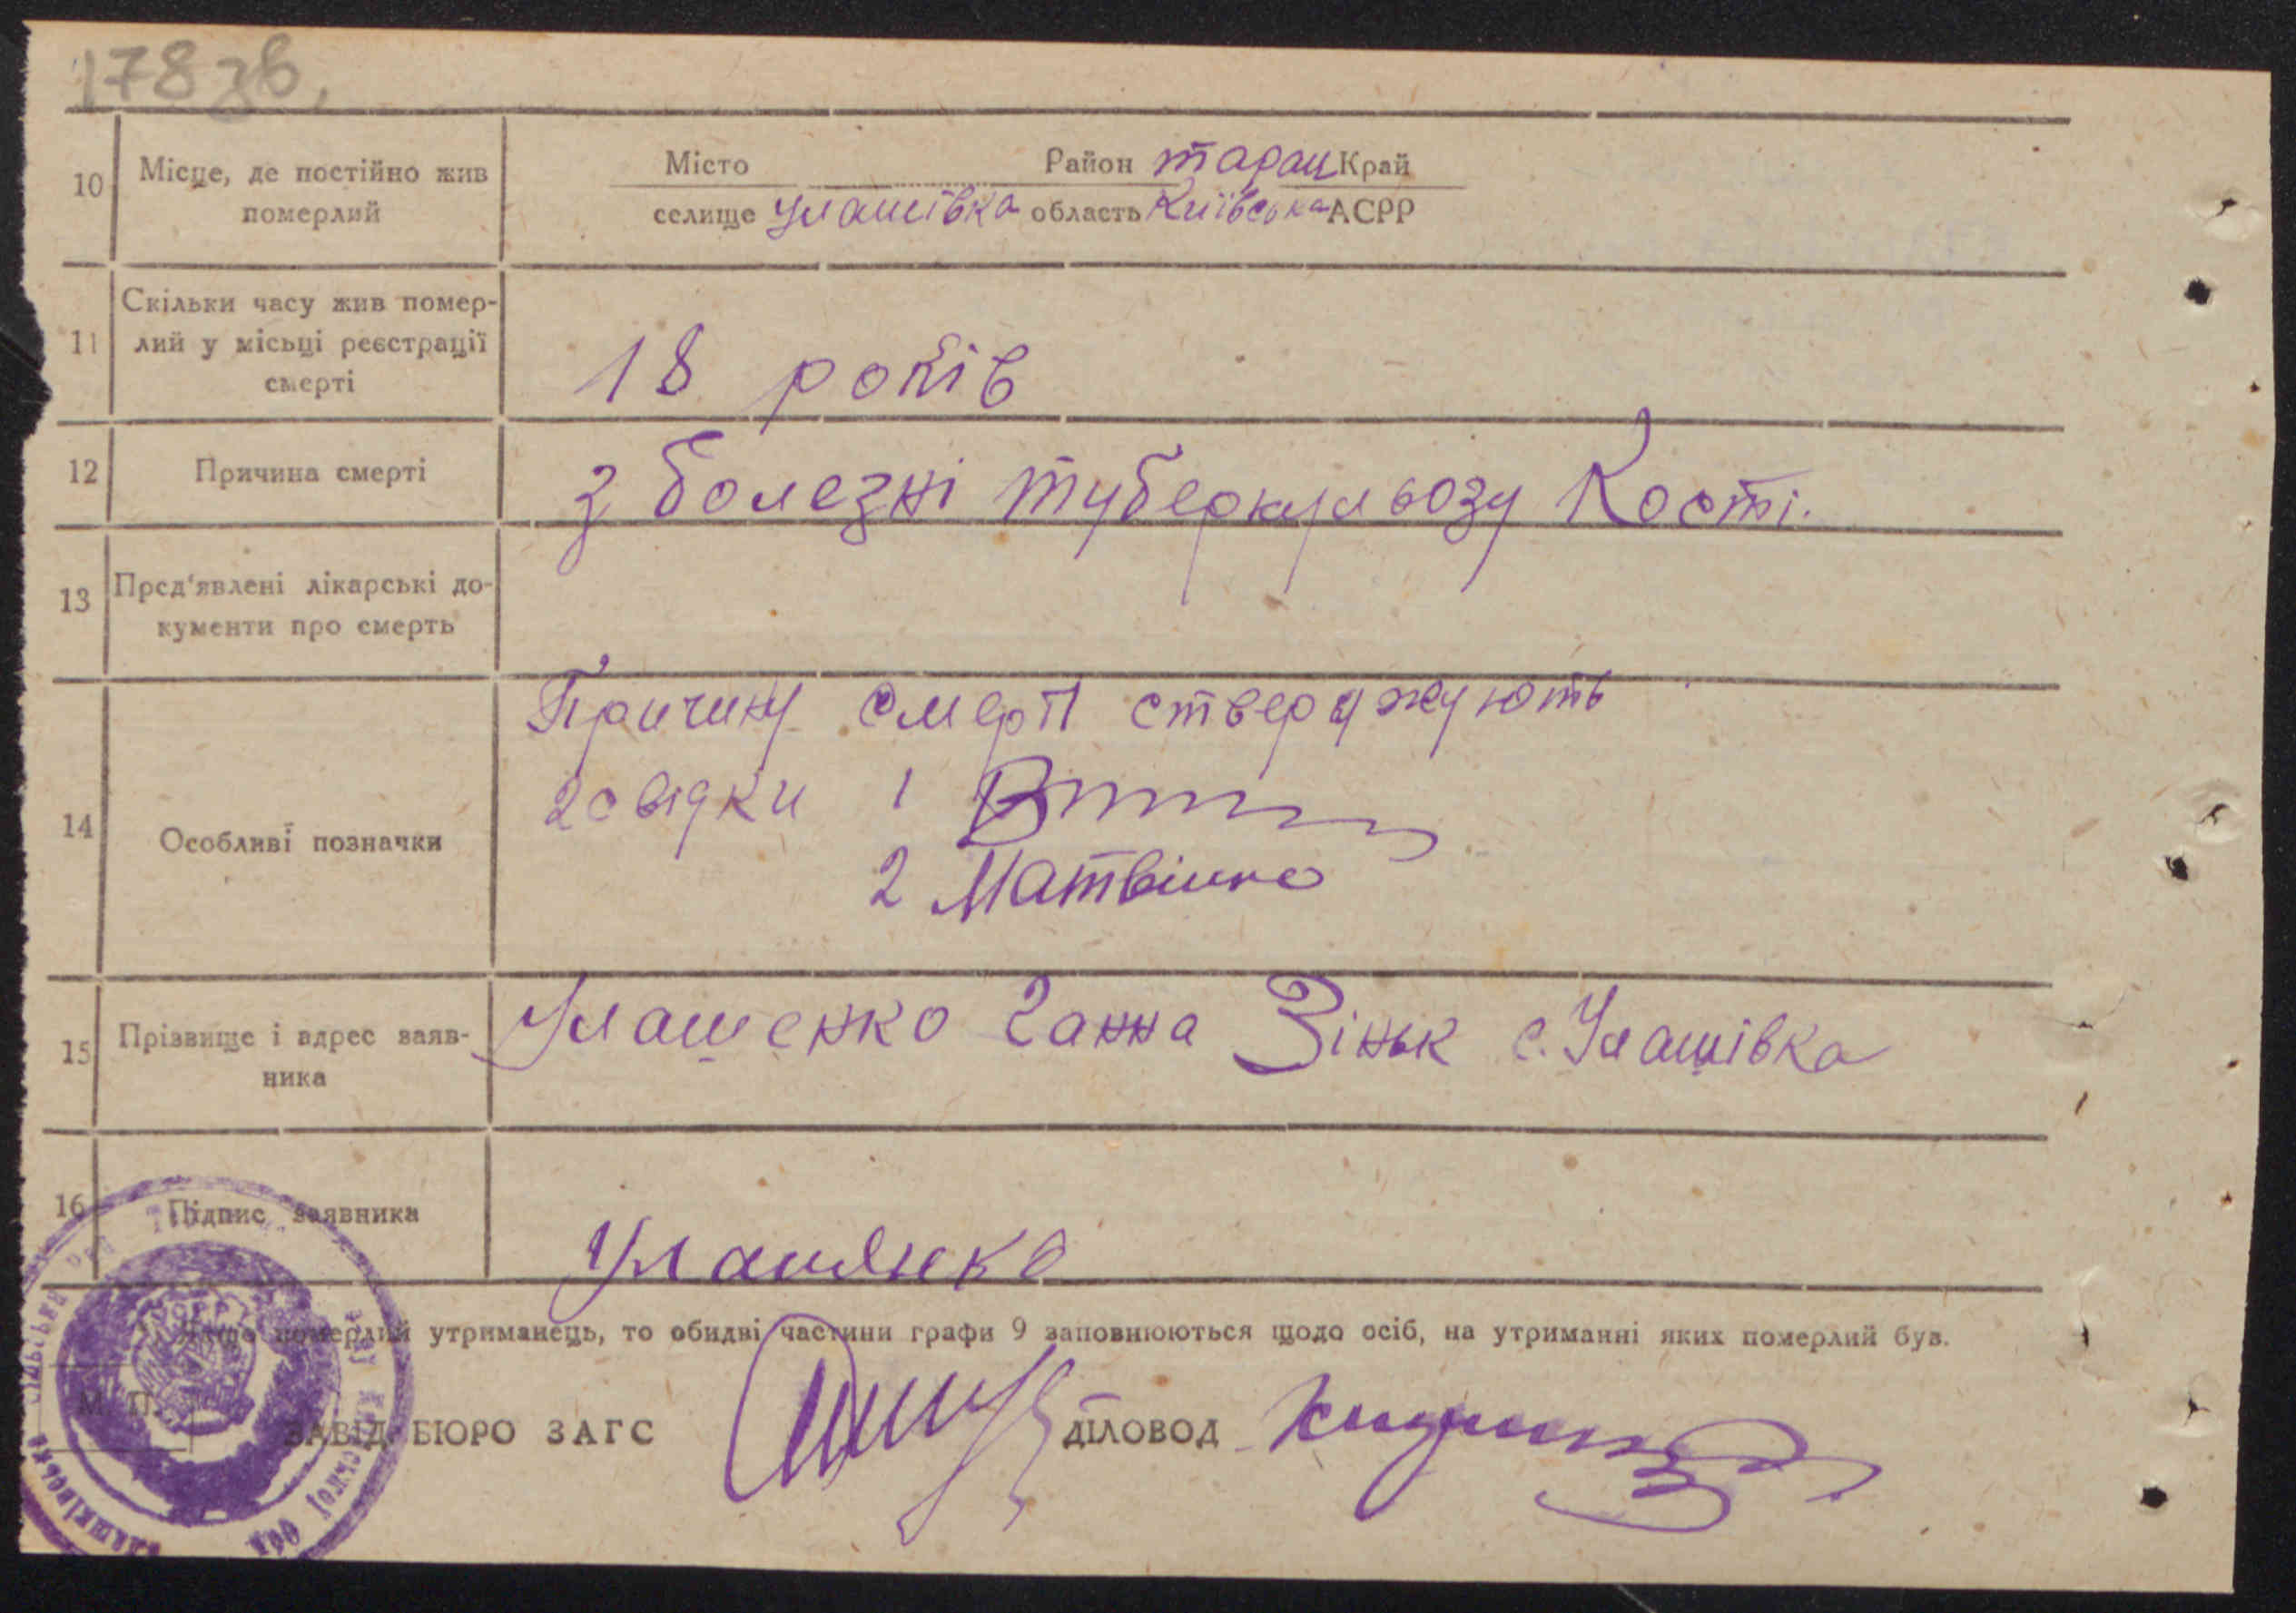 178 зв.
10 Місце, де постійно жив померлий
Місто Район таращ Край
селище улашівка область Київська АСРР
11 Скільки часу жив помер-
лий у місьці реєстрації
смерті
18 років
12 Причина смерті
з болезні туберкульозу Кості.
13 Пред'явлені лікарські до-
кументи про смерть
14 Особливі позначки
Причину смерті стверджують
2 свідки 1
2 Матвієнко
15 Прізвище і адрес заяв-
ника
Улашенко Ганна Зіньк с. Улашівка
16 Підпис заявника
Улашенко
Якщо померлий утриманець, то обидві частини графи 9 заповнюються щодо осіб, на утриманні яких померлий був.
М. П.
ЗАВІД. БЮРО ЗАГС ДІЛОВОД